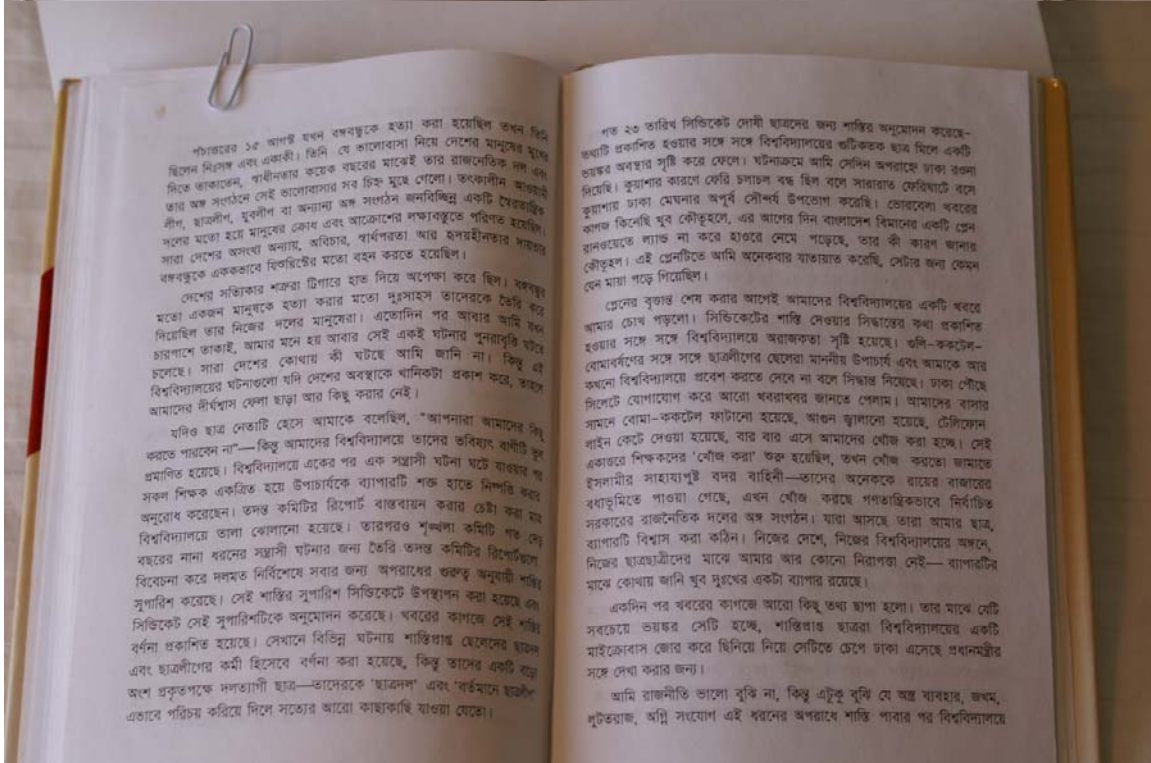 পঁচাত্তরের ১৫ আগস্ট যখন বঙ্গবন্ধুকে হত্যা করা হয়েছিল তখন তিনি
ছিলেন নিঃসঙ্গ এবং একাকী। তিনি যে ভালোবাসা নিয়ে দেশের মানুষের মুখের
দিতে তাকাতেন, স্বাধীনতার কয়েক বছরের মাঝেই তার রাজনৈতিক দল এবং
তার অঙ্গ সংগঠনে সেই ভালোবাসার সব চিহ্ন মুছে গেলো। তৎকালীন আওয়ামী
লীগ, ছাত্রলীগ, যুবলীগ বা অন্যান্য অঙ্গ সংগঠন জনবিচ্ছিন্ন একটি স্বৈরতান্ত্রিক
দলের মতো হয়ে মানুষের ক্রোধ এবং আক্রোশের লক্ষ্যবস্তুতে পরিণত হয়েছিল।
সারা দেশের অসংখ্য অন্যায়, অবিচার, স্বার্থপরতা আর হৃদয়হীনতার দায়ভার
বঙ্গবন্ধুকে এককভাবে যিশুখ্রিস্টের মতো বহন করতে হয়েছিল।
দেশের সত্যিকার শত্রুরা ট্রিগারে হাত দিয়ে অপেক্ষা করে ছিল। বঙ্গবন্ধুর
মতো একজন মানুষকে হত্যা করার মতো দুঃসাহস তাদেরকে তৈরি করে
দিয়েছিল তার নিজের দলের মানুষেরা। এতোদিন পর আবার আমি যখন
চারপাশে তাকাই, আমার মনে হয় আবার সেই একই ঘটনার পুনরাবৃত্তি ঘটতে
চলেছে। সারা দেশের কোথায় কী ঘটছে আমি জানি না। কিন্তু এই
বিশ্ববিদ্যালয়ের ঘটনাগুলো যদি দেশের অবস্থাকে খানিকটা প্রকাশ করে, তাহলে
আমাদের দীর্ঘশ্বাস ফেলা ছাড়া আর কিছু করার নেই।
যদিও ছাত্র নেতাটি হেসে আমাকে বলেছিল, “আপনারা আমাদের কিছু
করতে পারবেন না”—কিন্তু আমাদের বিশ্ববিদ্যালয়ে তাদের ভবিষ্যৎ বাণীটি ভুল
প্রমাণিত হয়েছে। বিশ্ববিদ্যালয়ে একের পর এক সন্ত্রাসী ঘটনা ঘটে যাওয়ার পর
সকল শিক্ষক একত্রিত হয়ে উপাচার্যকে ব্যাপারটি শক্ত হাতে নিষ্পত্তি করার
অনুরোধ করেছেন। তদন্ত কমিটির রিপোর্ট বাস্তবায়ন করার চেষ্টা করা মাত্র
বিশ্ববিদ্যালয়ে তালা ঝোলানো হয়েছে। তারপরও শৃঙ্খলা কমিটি গত দেড়
বছরের নানা ধরনের সন্ত্রাসী ঘটনার জন্য তৈরি তদন্ত কমিটির রিপোর্টগুলো
বিবেচনা করে দলমত নির্বিশেষে সবার জন্য অপরাধের গুরুত্ব অনুযায়ী শাস্তির
সুপারিশ করেছে। সেই শাস্তির সুপারিশ সিন্ডিকেটে উপস্থাপন করা হয়েছে এবং
সিন্ডিকেট সেই সুপারিশটিকে অনুমোদন করেছে। খবরের কাগজে সেই শাস্তির
বর্ণনা প্রকাশিত হয়েছে। সেখানে বিভিন্ন ঘটনায় শাস্তিপ্রাপ্ত ছেলেদের ছাত্রদল
এবং ছাত্রলীগের কর্মী হিসেবে বর্ণনা করা হয়েছে, কিন্তু তাদের একটি বড়ো
অংশ প্রকৃতপক্ষে দলত্যাগী ছাত্র—তাদেরকে 'ছাত্রদল' এবং 'বর্তমানে ছাত্রলীগ'
এভাবে পরিচয় করিয়ে দিলে সত্যের আরো কাছাকাছি যাওয়া যেতো।
গত ২৩ তারিখ সিন্ডিকেট দোষী ছাত্রদের জন্য শাস্তির অনুমোদন করেছে–
তথ্যটি প্রকাশিত হওয়ার সঙ্গে সঙ্গে বিশ্ববিদ্যালয়ের গুটিকতক ছাত্র মিলে একটি
ভয়ঙ্কর অবস্থার সৃষ্টি করে ফেলে। ঘটনাক্রমে আমি সেদিন অপরাহ্নে ঢাকা রওনা
দিয়েছি। কুয়াশার কারণে ফেরি চলাচল বন্ধ ছিল বলে সারারাত ফেরিঘাটে বসে
কুয়াশায় ঢাকা মেঘনার অপূর্ব সৌন্দর্য উপভোগ করেছি। ভোরবেলা খবরের
কাগজ কিনেছি খুব কৌতূহলে, এর আগের দিন বাংলাদেশ বিমানের একটি প্লেন
রানওয়েতে ল্যান্ড না করে হাওরে নেমে পড়েছে, তার কী কারণ জানার
কৌতূহল। এই প্লেনটিতে আমি অনেকবার যাতায়াত করেছি, সেটার জন্য কেমন
যেন মায়া পড়ে গিয়েছিল।
প্লেনের বৃত্তান্ত শেষ করার আগেই আমাদের বিশ্ববিদ্যালয়ের একটি খবরে
আমার চোখ পড়লো। সিন্ডিকেটের শাস্তি দেওয়ার সিদ্ধান্তের কথা প্রকাশিত
হওয়ার সঙ্গে সঙ্গে বিশ্ববিদ্যালয়ে অরাজকতা সৃষ্টি হয়েছে। গুলি-ককটেল-
বোমাবর্ষণের সঙ্গে সঙ্গে ছাত্রলীগের ছেলেরা মাননীয় উপাচার্য এবং আমাকে আর
কখনো বিশ্ববিদ্যালয়ে প্রবেশ করতে দেবে না বলে সিদ্ধান্ত নিয়েছে। ঢাকা পৌছে
সিলেটে যোগাযোগ করে আরো খবরাখবর জানতে পেলাম। আমাদের বাসার
সামনে বোমা-ককটেল ফাটানো হয়েছে, আগুন জ্বালানো হয়েছে, টেলিফোন
লাইন কেটে দেওয়া হয়েছে, বার বার এসে আমাদের খোঁজ করা হচ্ছে। সেই
একাত্তরে শিক্ষকদের 'খোঁজ করা' শুরু হয়েছিল, তখন খোঁজ করতো জামাতে
ইসলামীর সাহায্যপুষ্ট বদর বাহিনী—তাদের অনেককে রায়ের বাজারের
বধ্যভূমিতে পাওয়া গেছে, এখন খোঁজ করছে গণতান্ত্রিকভাবে নির্বাচিত
সরকারের রাজনৈতিক দলের অঙ্গ সংগঠন। যারা আসছে তারা আমার ছাত্র,
ব্যাপারটি বিশ্বাস করা কঠিন। নিজের দেশে, নিজের বিশ্ববিদ্যালয়ের অঙ্গনে,
নিজের ছাত্রছাত্রীদের মাঝে আমার আর কোনো নিরাপত্তা নেই— ব্যাপারটির
মাঝে কোথায় জানি খুব দুঃখের একটা ব্যাপার রয়েছে।
একদিন পর খবরের কাগজে আরো কিছু তথ্য ছাপা হলো। তার মাঝে যেটি
সবচেয়ে ভয়ঙ্কর সেটি হচ্ছে, শাস্তিপ্রাপ্ত ছাত্ররা বিশ্ববিদ্যালয়ের একটি
মাইক্রোবাস জোর করে ছিনিয়ে নিয়ে সেটিতে চেপে ঢাকা এসেছে প্রধানমন্ত্রীর
সঙ্গে দেখা করার জন্য।
আমি রাজনীতি ভালো বুঝি না, কিন্তু এটুকু বুঝি যে অস্ত্র ব্যবহার, জখম,
লুটতরাজ, অগ্নি সংযোগ এই ধরনের অপরাধে শাস্তি পাবার পর বিশ্ববিদ্যালয়ে